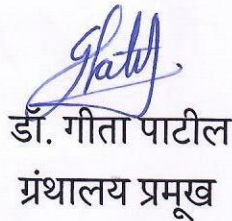 डॉ. गीता पाटील
ग्रंथालय प्रमुख